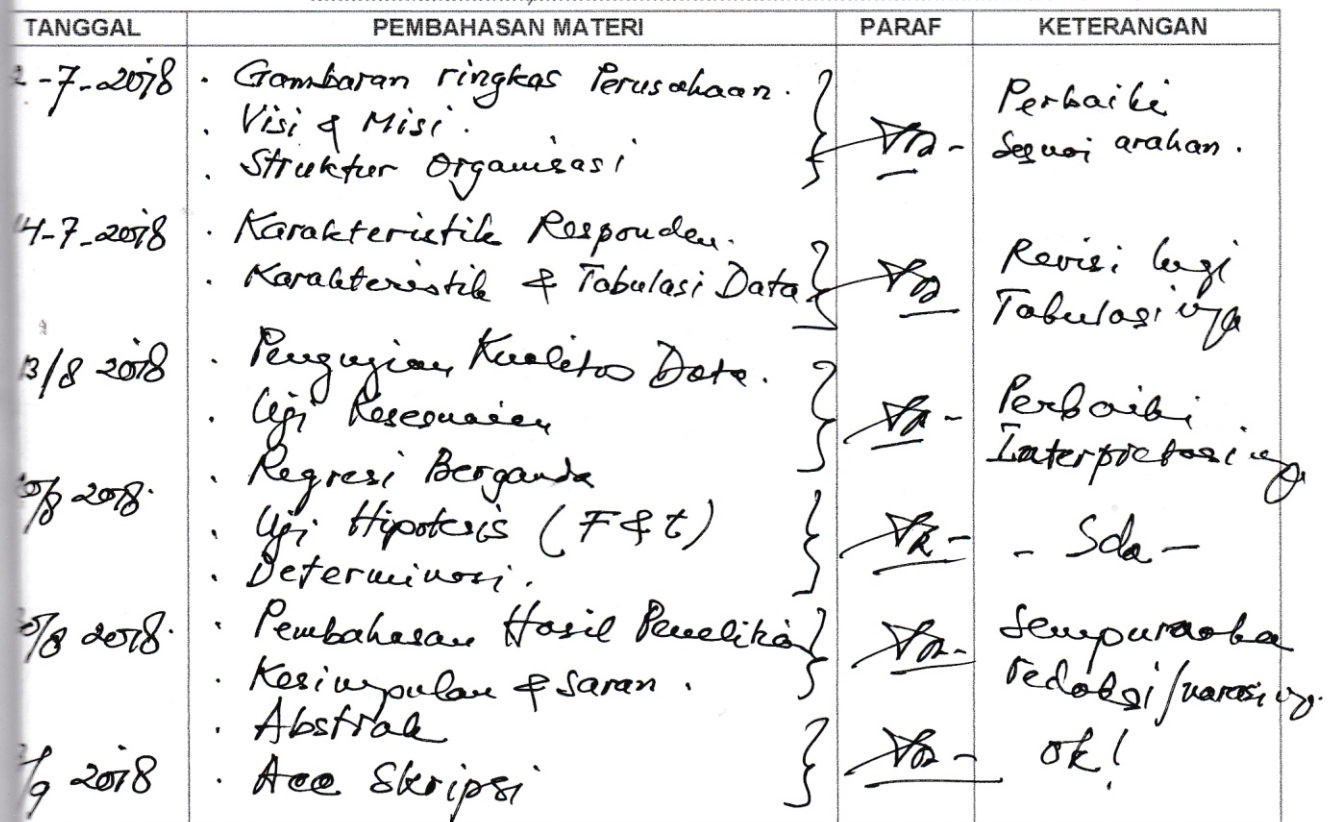 TANGGAL PEMBAHASAN MATERI PARAF KETERANGAN
2-7-2018 . Gambaran ringkas Perusahaan.
. Visi & Misi.
. Struktur Organisasi
Perbaiki
Sesuai arahan.
4-7-2018 . Karakteristik Responden.
. Karakteristik & Tabulasi Data
Revisi lagi
Tabulasinya
13/8 2018 . Pengujian Kualitas Data.
. Uji Kesesuaian
. Regresi Berganda
Perbaiki
Interpretasinya
/8 2018. . Uji Hipotesis (F & t)
. Determinasi.
- Sda -
/8 2018. . Pembahasan Hasil Penelitian
. Kesimpulan & Saran.
Sempurnaka
redaksi/narasinya.
. Abstrak
/9 2018 . Acc Skripsi
Ok!